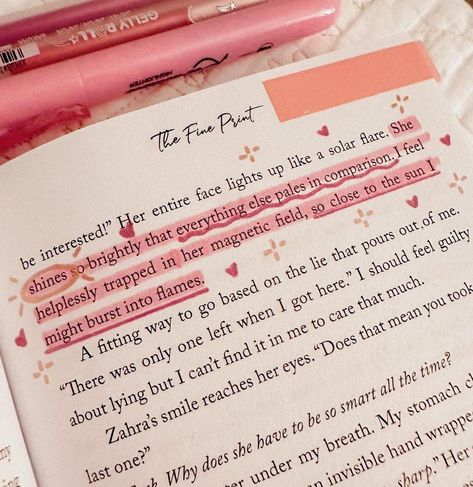 GELLY ROLL
HIGHLIGHTER
The Fine Print
be interested!” Her entire face lights up like a solar flare. She
shines so brightly that everything else pales in comparison. I feel
helplessly trapped in her magnetic field, so close to the sun I
might burst into flames.
A fitting way to go based on the lie that pours out of me.
“There was only one left when I got here.” I should feel guilty
about lying but I can’t find it in me to care that much.
Zahra’s smile reaches her eyes. “Does that mean you took
last one?”
Why does she have to be so smart all the time?
under my breath. My stomach
an invisible hand wrappe
sharp.” Her